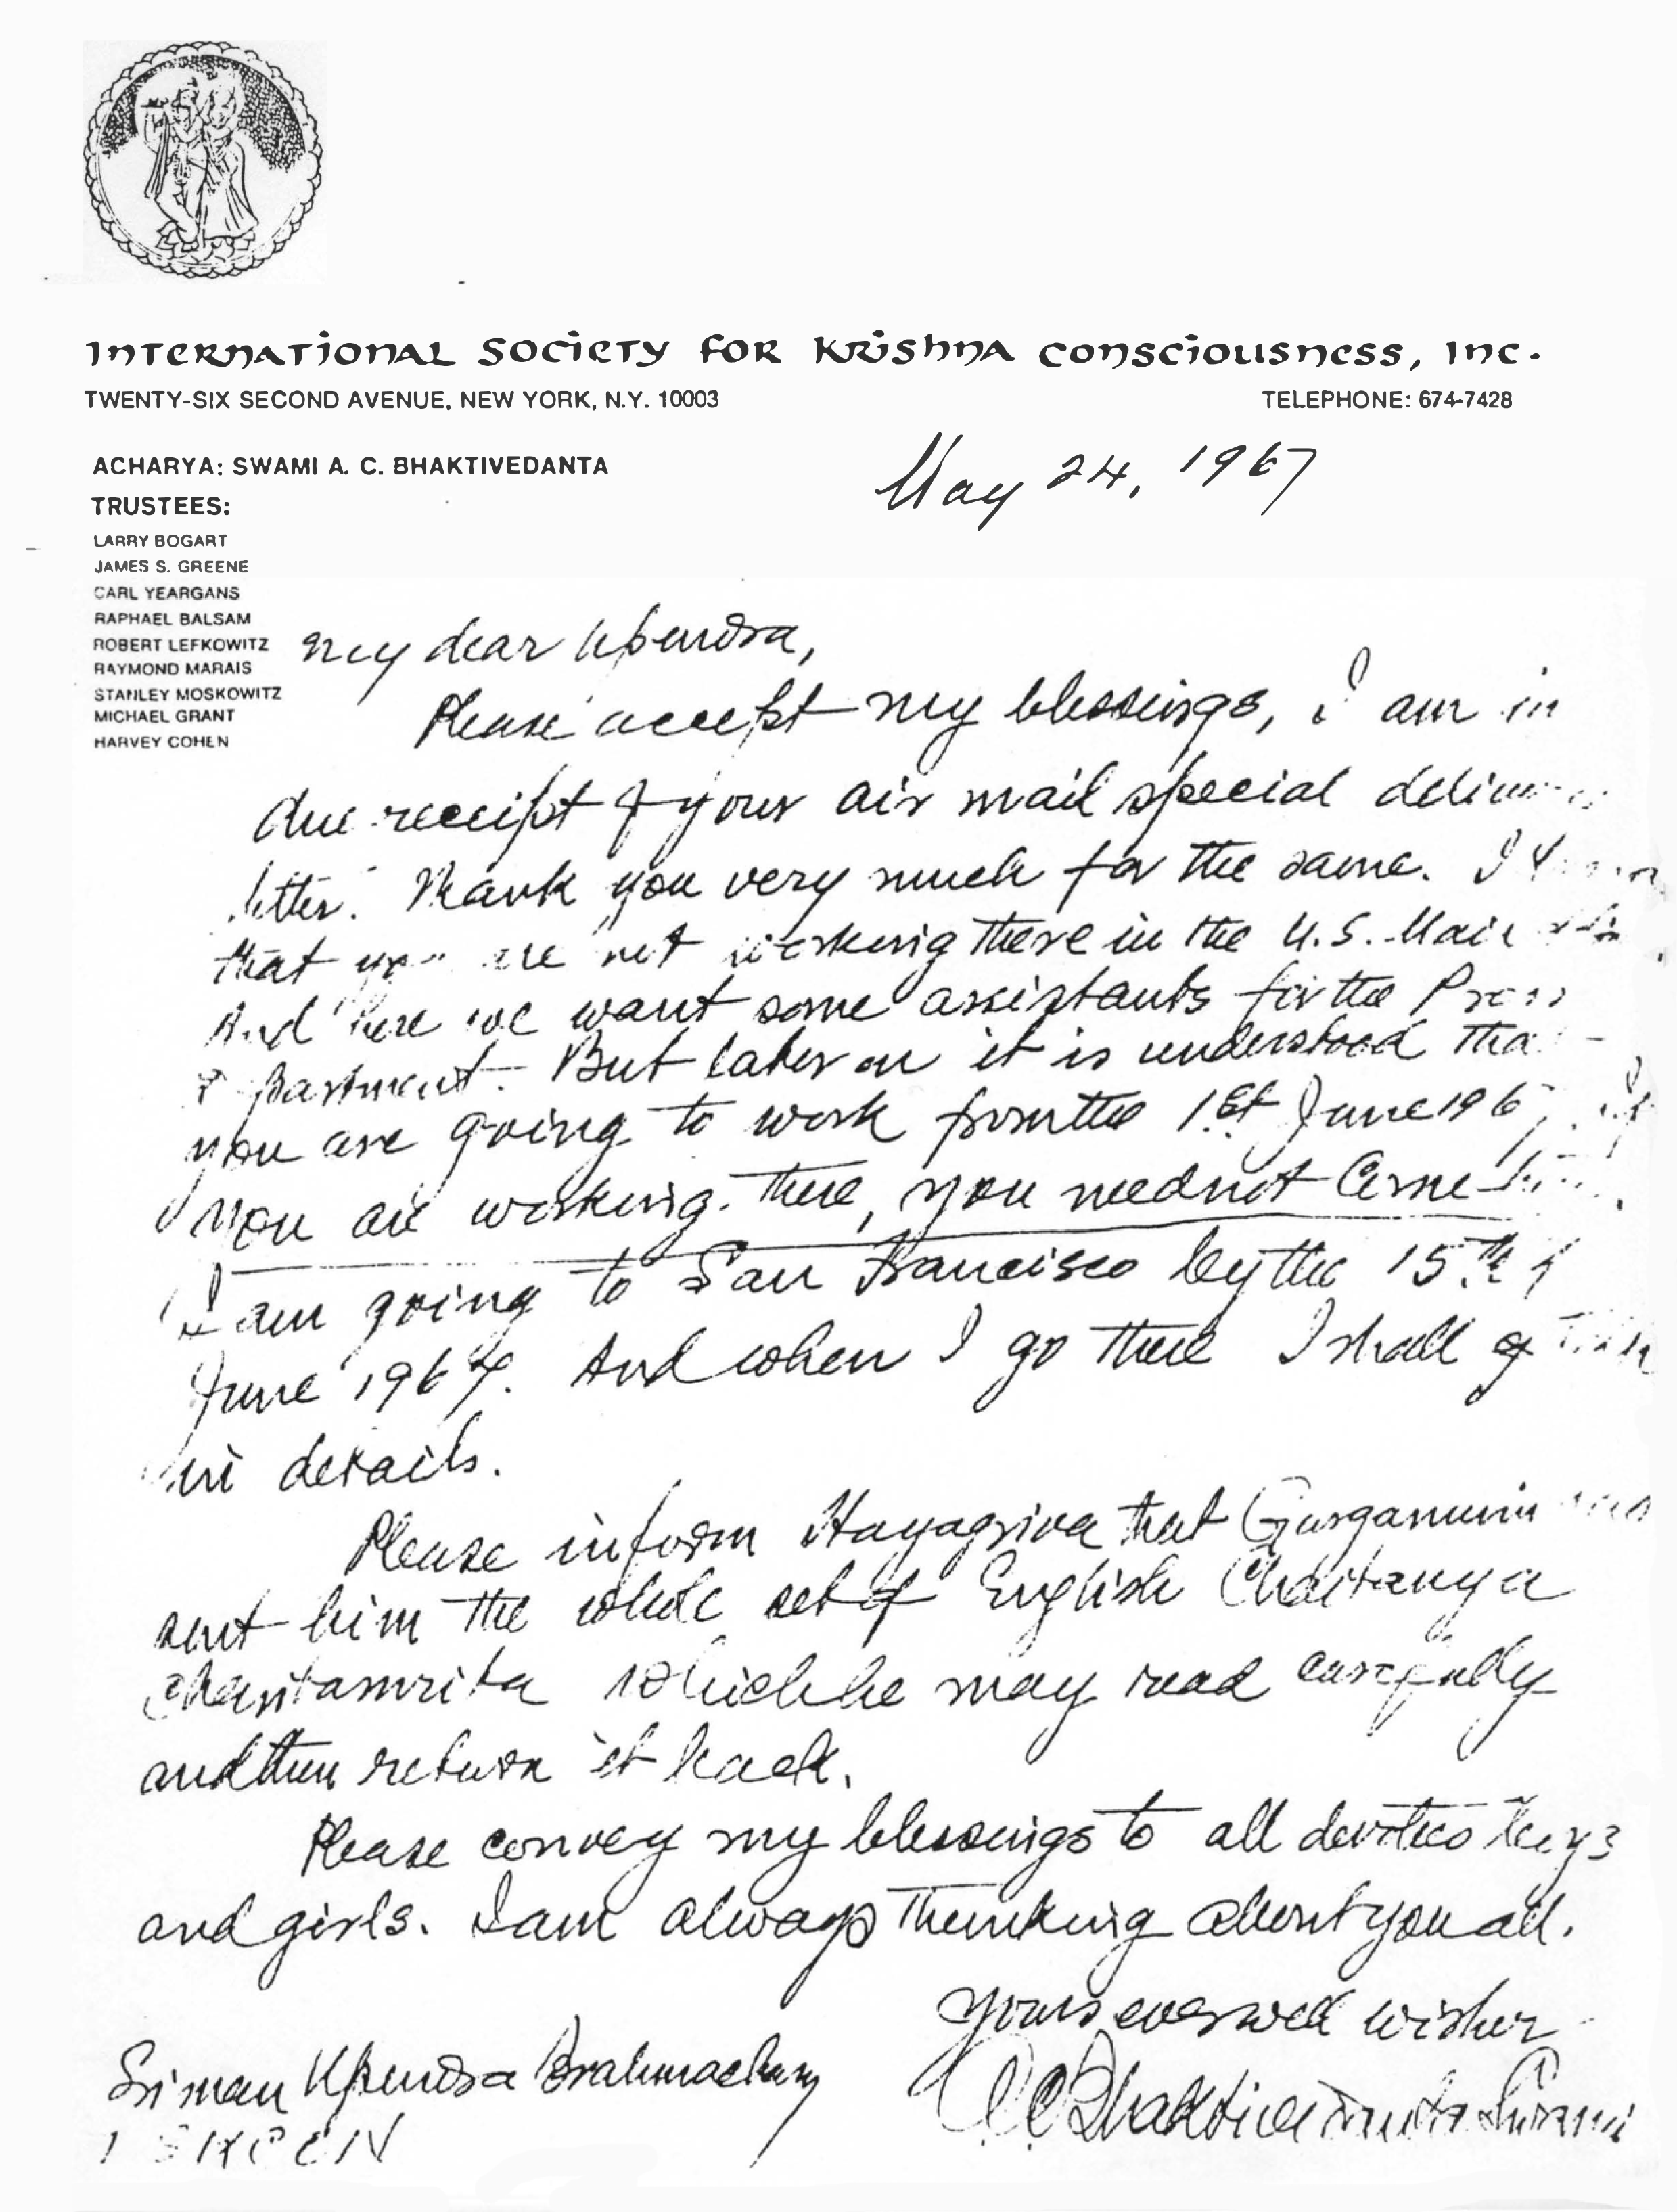 INTERNATIONAL SOCIETY FOR KRISHNA CONSCIOUSNESS, INC.
TWENTY-SIX SECOND AVENUE, NEW YORK, N.Y. 10003 TELEPHONE: 674-7428
ACHARYA: SWAMI A. C. BHAKTIVEDANTA
May 24, 1967
TRUSTEES:
LARRY BOGART
JAMES S. GREENE
CARL YEARGANS
RAPHAEL BALSAM
ROBERT LEFKOWITZ
RAYMOND MARAIS
STANLEY MOSKOWITZ
MICHAEL GRANT
HARVEY COHEN
My dear Upendra,
Please accept my blessings, I am in
due receipt of your air mail special
letter. Thank you very much for the same. I
that you are not working there in the U.S. Mail
And here we want some assistants for the Press
department. But later on it is understood that
you are going to work from the 1st June 1967. If
you are working there, you need not come
I am going to San Francisco by the 15th of
June 1967. And when I go there I shall
in details.
Please inform Hayagriva that Gargamuni
sent him the whole set of English Chaitanya
Charitamrita which he may read carefully
and then return it back.
Please convey my blessings to all devotees boys
and girls. I am always thinking about you all.
Yours ever well wisher
A.C. Bhaktivedanta Swami
Sriman Upendra Brahmachary
ISKCON